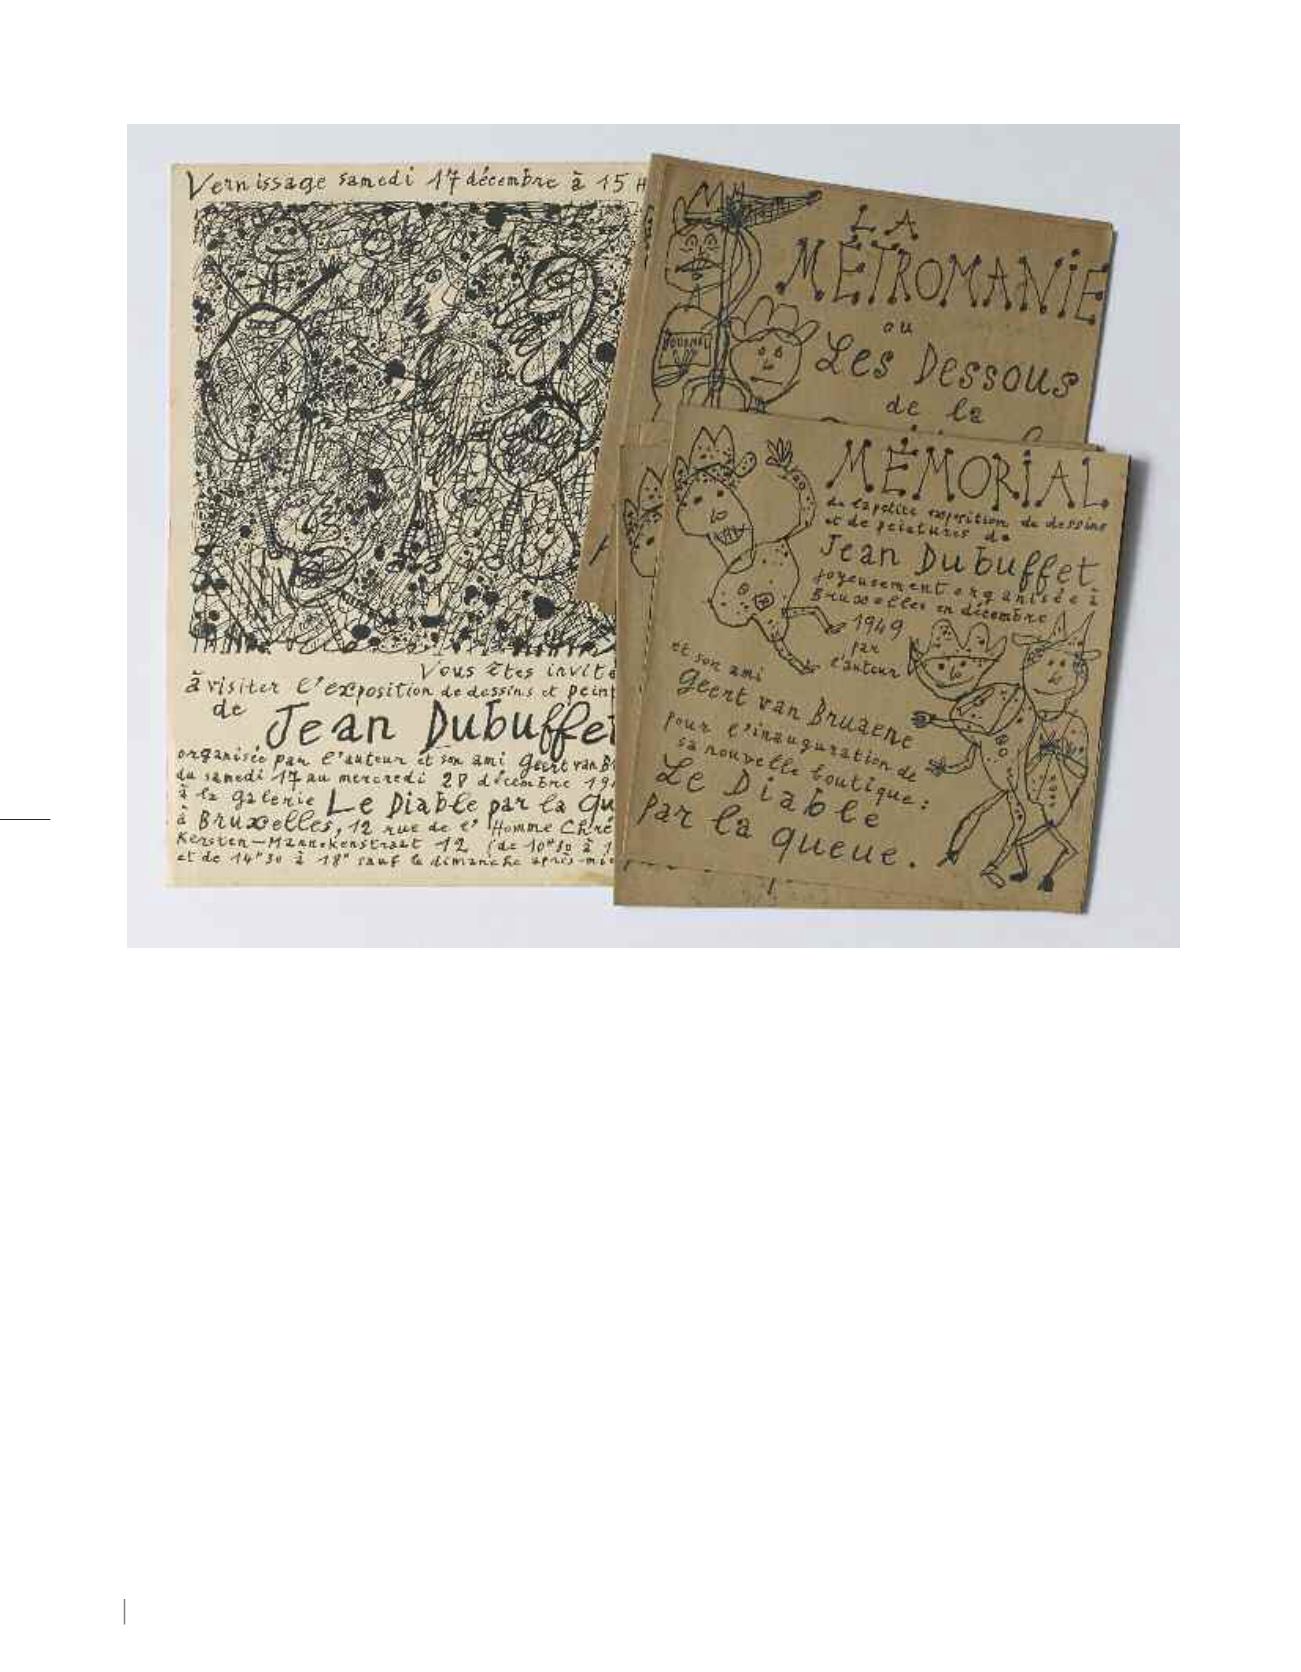 Vernissage samedi 17 décembre à 15 H
Vous êtes invité
à visiter l'exposition de dessins et peint
de Jean Dubuffet
organisée par l'auteur et son ami Geert van Br
du samedi 17 au mercredi 28 décembre 194
à la galerie Le Diable par la qu
à Bruxelles, 12 rue de l'Homme Chré
Kersten-Mannekenstraat 12 (de 10H30 à 1
et de 14H30 à 18H sauf le dimanche après-mi
LA
MÉTROMANiE
ou
Les Dessous
de la
JOURNAL
MÉMORiAL
de la petite exposition de dessins
et de peintures de
Jean Dubuffet
joyeusement organisée à
Bruxelles en décembre
1949
par
l'auteur
et son ami
Geert van Bruaene
pour l'inauguration de
sa nouvelle boutique:
Le Diable
par la queue.